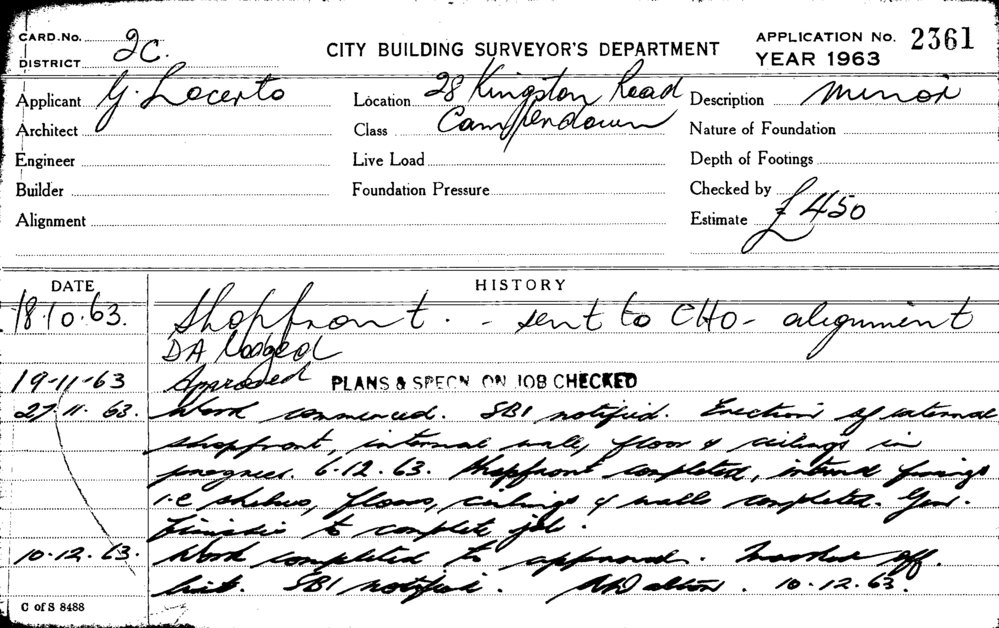 CARD.No.
DISTRICT 2C.
CITY BUILDING SURVEYOR'S DEPARTMENT
APPLICATION No. 2361
YEAR 1963
Applicant G. Locerto
Location 28 Kingston Road
Description Minor
Architect
Class Camperdown
Nature of Foundation
Engineer
Live Load
Depth of Footings
Builder
Foundation Pressure
Checked by
Alignment
Estimate £450
DATE HISTORY
18.10.63. Shopfront. - sent to CHO - alignment
DA lodged
19-11-63 Approved PLANS & SPECN ON JOB CHECKED
27.11.63. Work commenced. SBI notified. Erection of external
shopfront, internal walls, floor & ceilings in
progress. 6.12.63. Shopfront completed, internal fixings
i.e shelves, floors, ceilings & walls completed. Gen.
finishes to complete job.
10.12.63. Work completed to approval. Marked off
list. SBI notified. 10.12.63.
C of S 8488